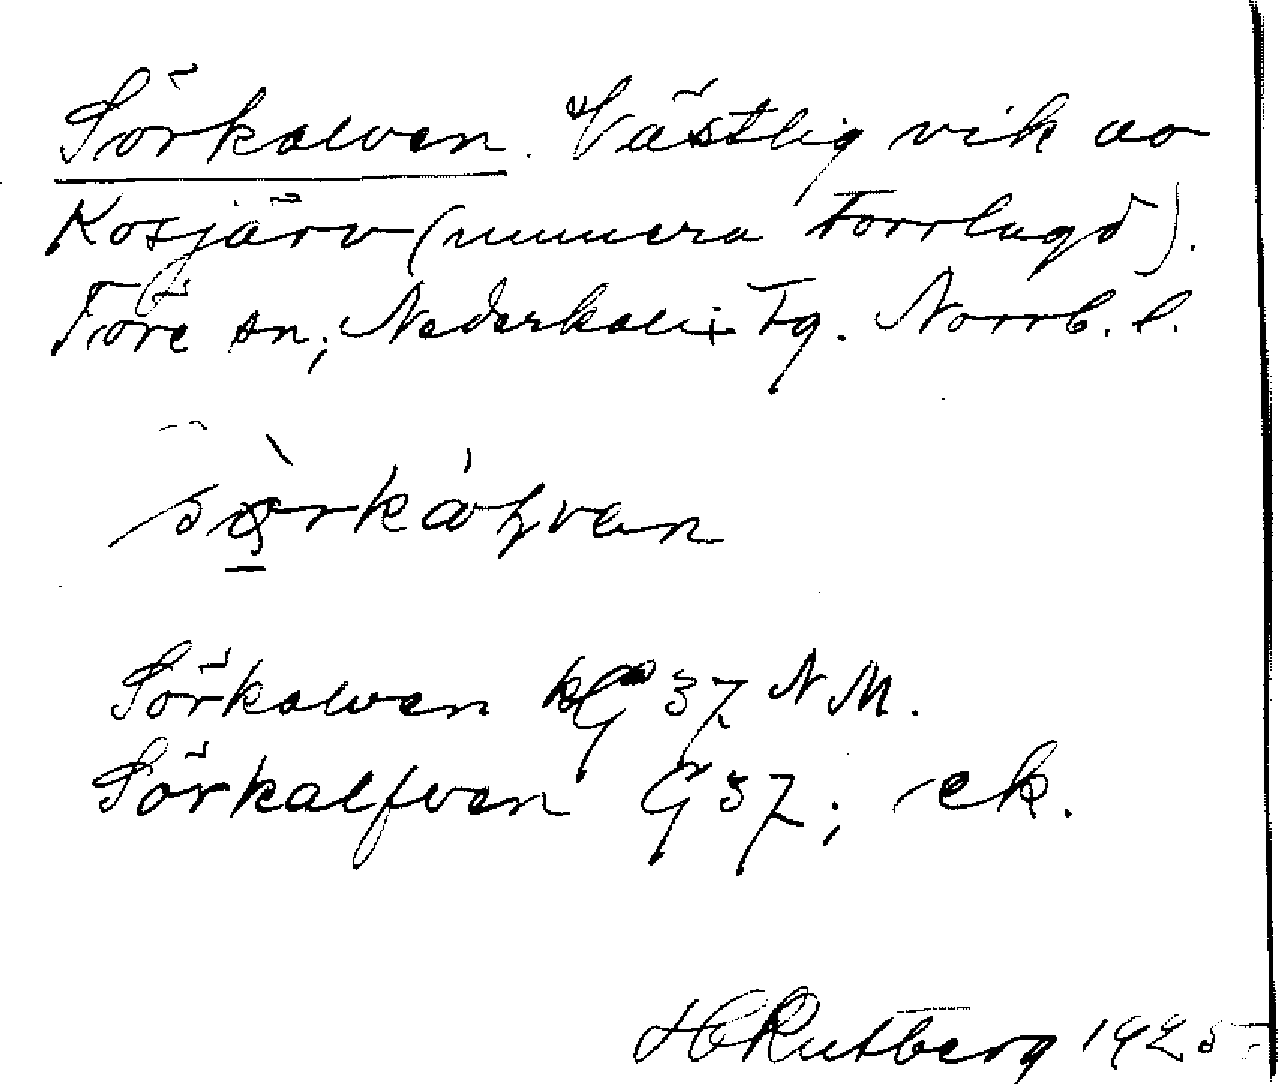 Sörkalven. Västlig vik av
Kosjärv (numera torrlagd).
Töre sn; Nederkalix Tg. Norrb. l.
Sörkalven kG 37 NM.
Sörkalfven G 37; ek.
H Rutberg 1925